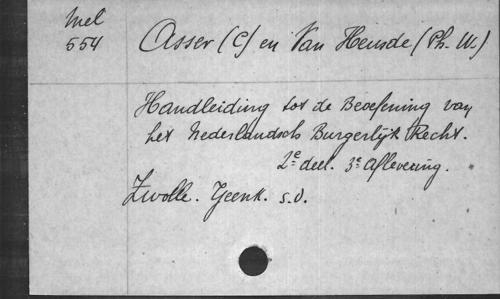 Mel
554
Asser (C) en Van Heusde (Ph. W.)
Handleiding tot de Beoefening van
het Nederlandsch Burgerlijk Recht.
2e deel. 3e Aflevering.
Zwolle. Tjeenk. s.d.